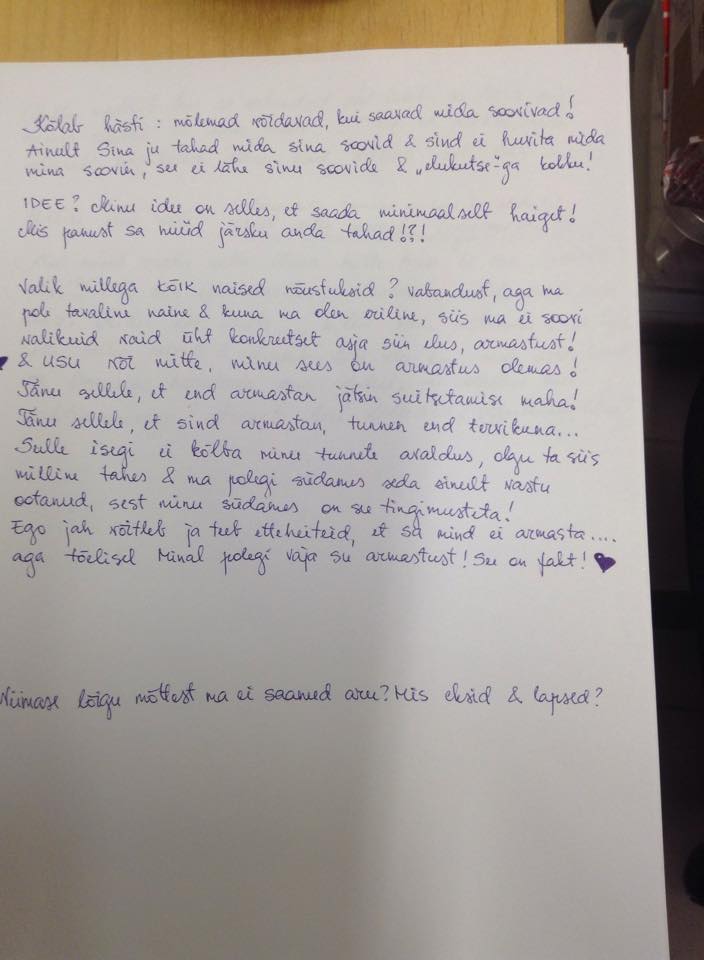 Kõlab hästi : mõlemad võidavad, kui saavad mida soovivad!
Ainult Sina ju tahad mida sina soovid & sind ei huvita mida
mina soovin, see ei lähe sinu soovide & „elukutse"-ga kokku!
IDEE? Minu idee on selles, et saada minimaalselt haiget!
Mis panust sa nüüd järsku anda tahad!?!
Valik millega KÕIK naised nõustuksid? Vabandust, aga ma
pole tavaline naine & kuna ma olen eriline, siis ma ei soovi
valikuid vaid üht konkreetset asja siin elus, armastust!
& USU või mitte, minu sees on armastus olemas!
Tänu sellele, et end armastan jätsin suitsetamise maha!
Tänu sellele, et sind armastan, tunnen end tervikuna...
Sulle isegi ei kõlba minu tunnete avaldus, olgu ta siis
milline tahes & ma polegi südames seda sinult vastu
ootanud, sest minu südames on see tingimusteta!
Ego jah võitleb ja teeb etteheiteid, et sa mind ei armasta....
aga tõelisel Minal polegi vaja su armastust! See on fakt!
Viimase lõigu mõttest ma ei saanud aru? Mis eksid & lapsed?